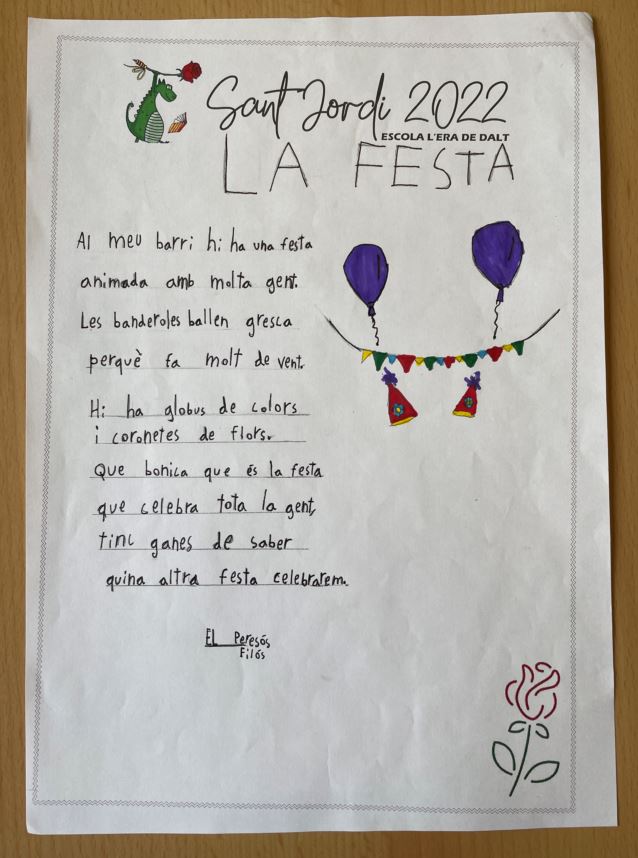 Sant Jordi 2022
ESCOLA L'ERA DE DALT
LA FESTA
Al meu barri hi ha una festa
animada amb molta gent.
Les banderoles ballen gresca
perquè fa molt de vent.
Hi ha globus de colors
i coronetes de flors.
Que bonica que és la festa
que celebra tota la gent,
tinc ganes de saber
quina altra festa celebrarem.
EL Peresós
Filós